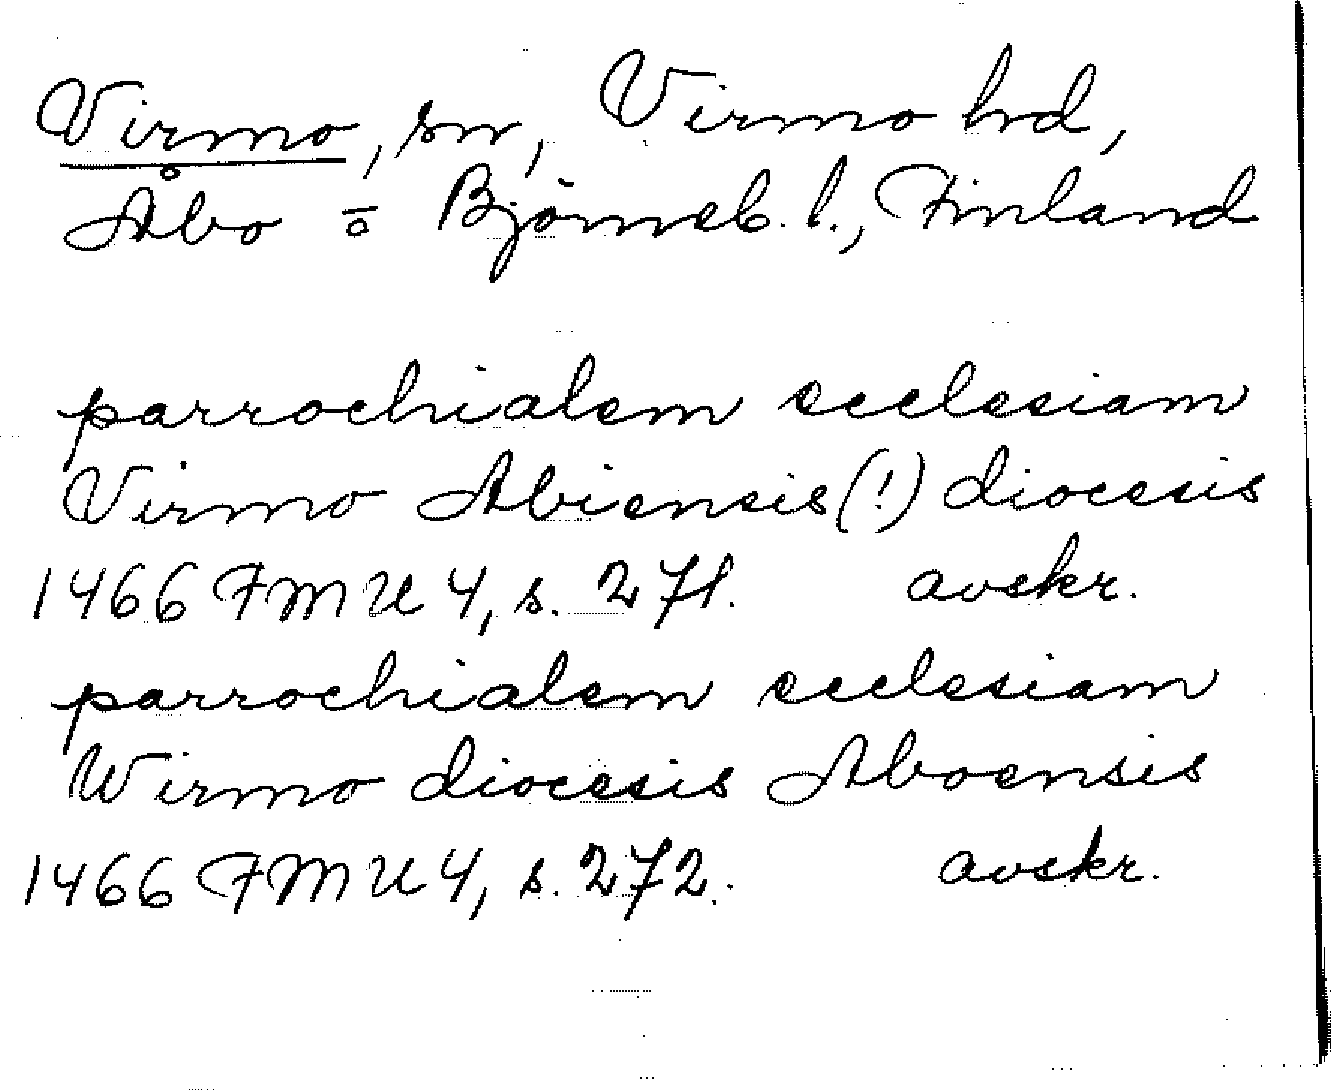 Virmo, sn, Virmo hd,
Åbo = Björneb. l., Finland
parrochialem ecclesiam
Virmo Abiensis (!) diocesis
1466 FMU 4, s. 271. avskr.
parrochialem ecclesiam
Wirmo diocesis Aboensis
1466 FMU 4, s. 272. avskr.